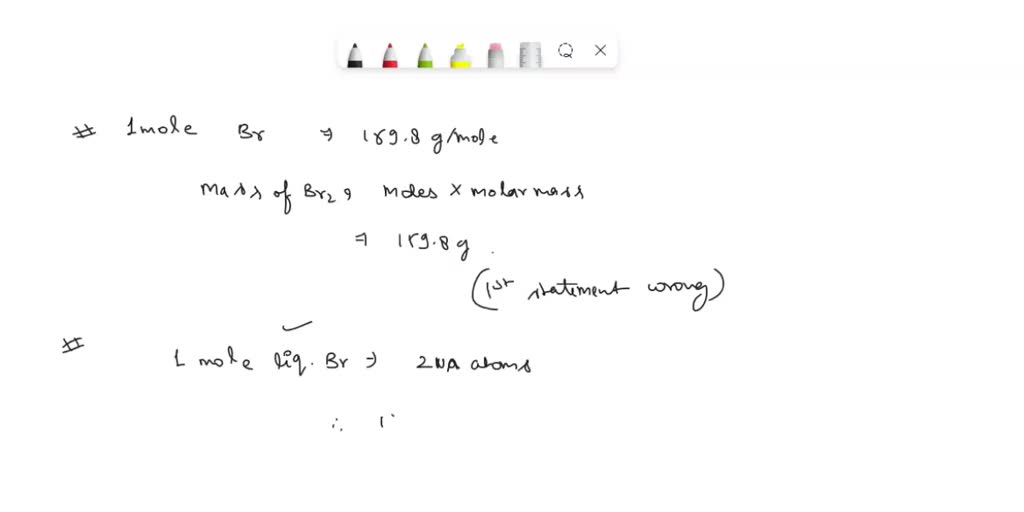 # 1 mole Br ⇒ 159.8 g/mole
Mass of Br₂ ⇒ Moles × molar mass
⇒ 159.8 g.
(1st statement wrong)
# 1 mole liq. Br ⇒ 2NA atoms
∴ 1